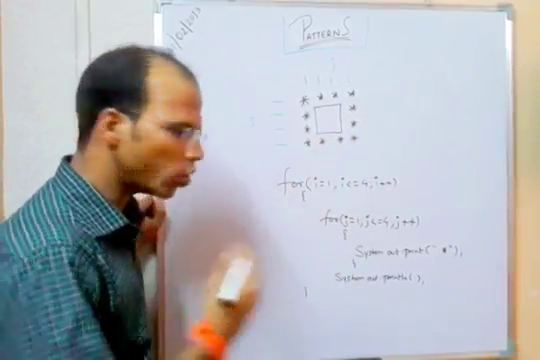 /02/2013
PATTERNS
* * * *
* *
* *
* * * *
for(i=1, i<=4, i++)
{
for(j=1, j<=4, j++)
{
System out print(" *"),
}
System out println( ),
}